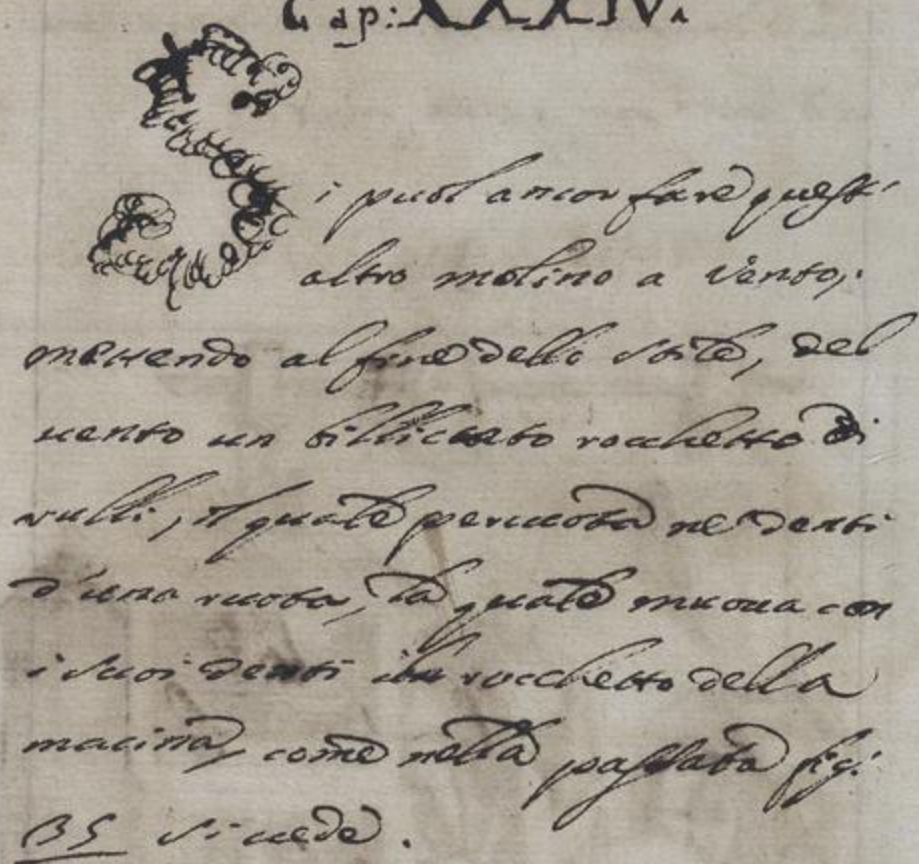 Cap: XXXIV.
Si puol ancor fare quest'
altro molino a vento,
mettendo al fine dello stile, del
uento un billicato rocchetto di
rulli, il quale percuota ne denti
d'una ruota, la quale muoua con
i suoi denti il rocchetto della
macina, come nella passata fig:
35 si uede.